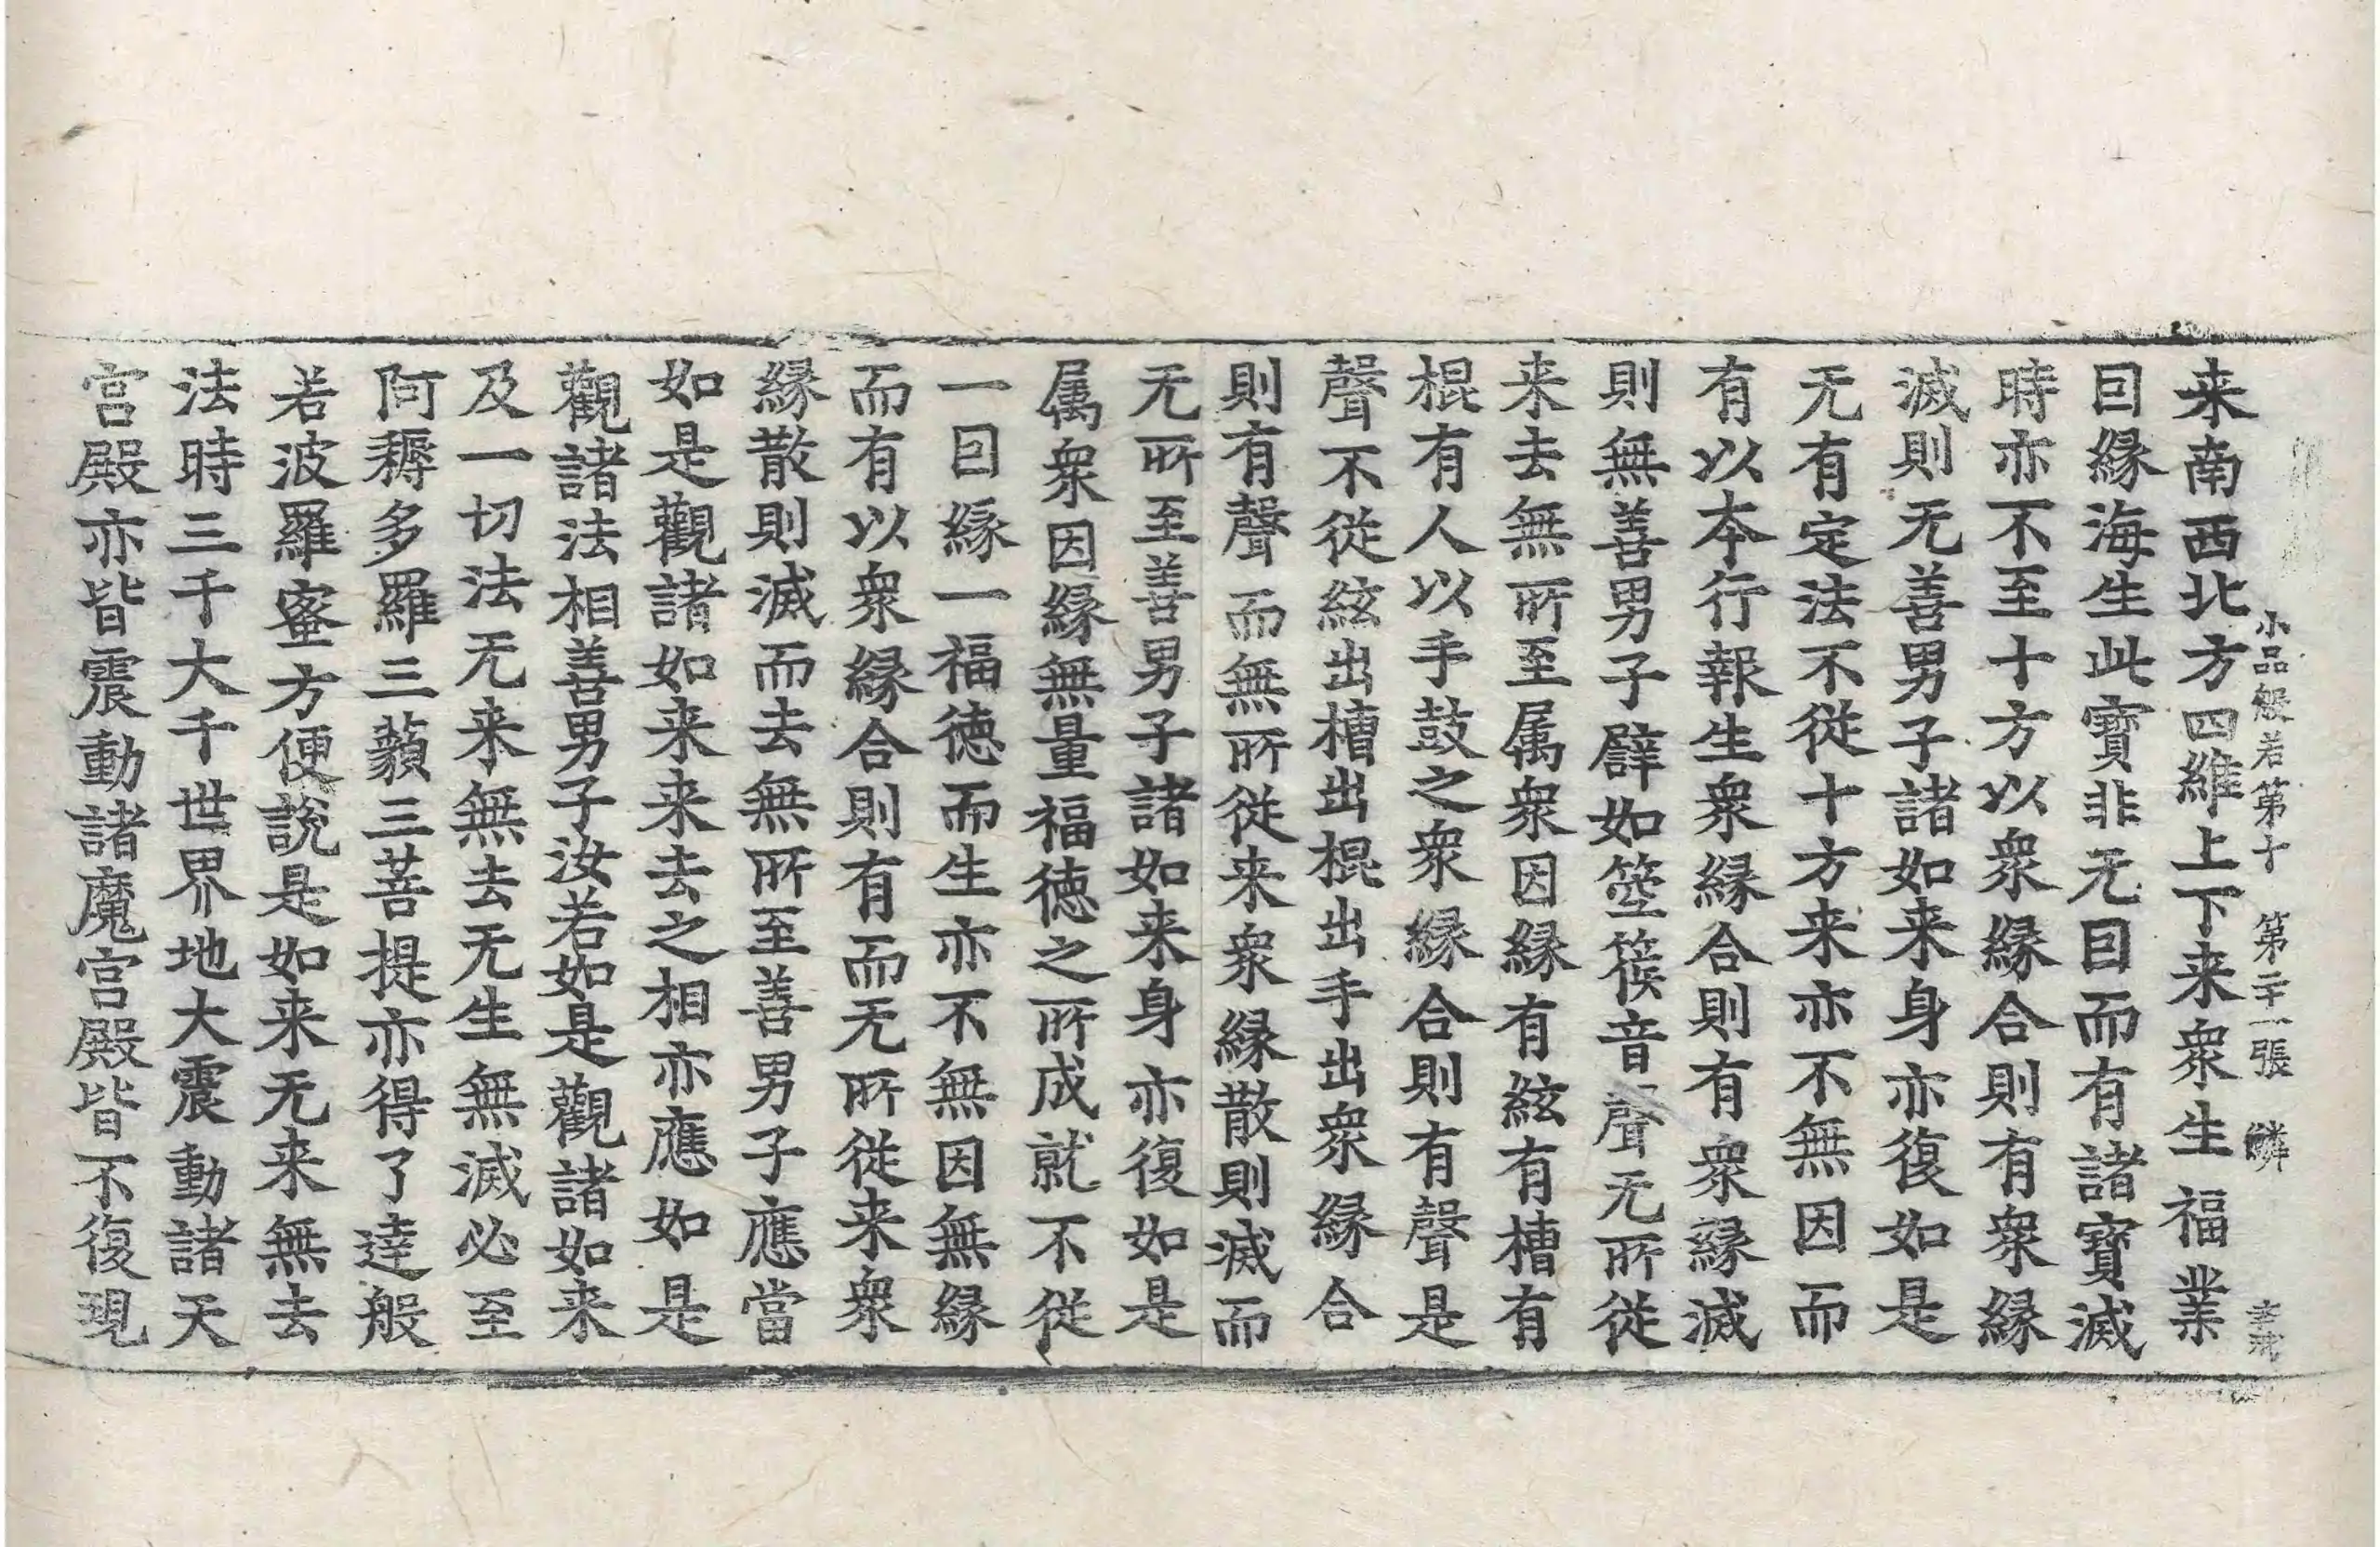 小品般若第十　第二十一張　鱗
来南西北方四維上下来衆生福業
囙緣海生此寶非无囙而有諸寶滅
時亦不至十方以衆緣合則有衆緣
滅則无善男子諸如来身亦復如是
无有定法不從十方来亦不無因而
有以本行報生衆緣合則有衆緣滅
則無善男子辟如箜篌音聲无所從
来去無所至属衆因緣有絃有槽有
棍有人以手鼓之衆緣合則有聲是
聲不從絃出槽出棍出手出衆緣合
則有聲而無所從来衆緣散則滅而
无所至善男子諸如来身亦復如是
属衆因緣無量福徳之所成就不從
一囙緣一福徳而生亦不無因無緣
而有以衆緣合則有而无所從来衆
緣散則滅而去無所至善男子應當
如是觀諸如来来去之相亦應如是
觀諸法相善男子汝若如是觀諸如来
及一切法无来無去无生無滅必至
阿耨多羅三藐三菩提亦得了達般
若波羅蜜方便說是如来无来無去
法時三千大千世界地大震動諸天
宮殿亦皆震動諸魔宮殿皆不復現